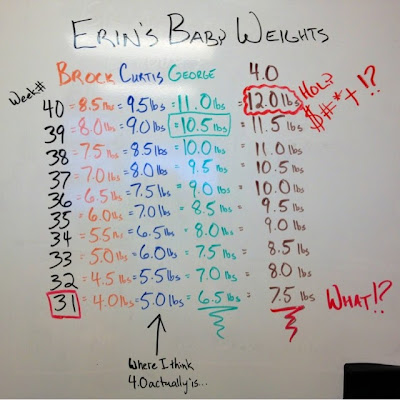 ERIN'S BABY WEIGHTS
Week# BROCK CURTIS GEORGE 4.0
40 = 8.5 lbs = 9.5 lbs = 11.0 lbs = 12.0 lbs HOLY $#*+!?
39 = 8.0 lbs = 9.0 lbs = 10.5 lbs = 11.5 lbs
38 = 7.5 lbs = 8.5 lbs = 10.0 lbs = 11.0 lbs
37 = 7.0 lbs = 8.0 lbs = 9.5 lbs = 10.5 lbs
36 = 6.5 lbs = 7.5 lbs = 9.0 lbs = 10.0 lbs
35 = 6.0 lbs = 7.0 lbs = 8.5 lbs = 9.5 lbs
34 = 5.5 lbs = 6.5 lbs = 8.0 lbs = 9.0 lbs
33 = 5.0 lbs = 6.0 lbs = 7.5 lbs = 8.5 lbs
32 = 4.5 lbs = 5.5 lbs = 7.0 lbs = 8.0 lbs
31 = 4.0 lbs = 5.0 lbs = 6.5 lbs = 7.5 lbs WHAT!?
Where I think
4.0 actually is...